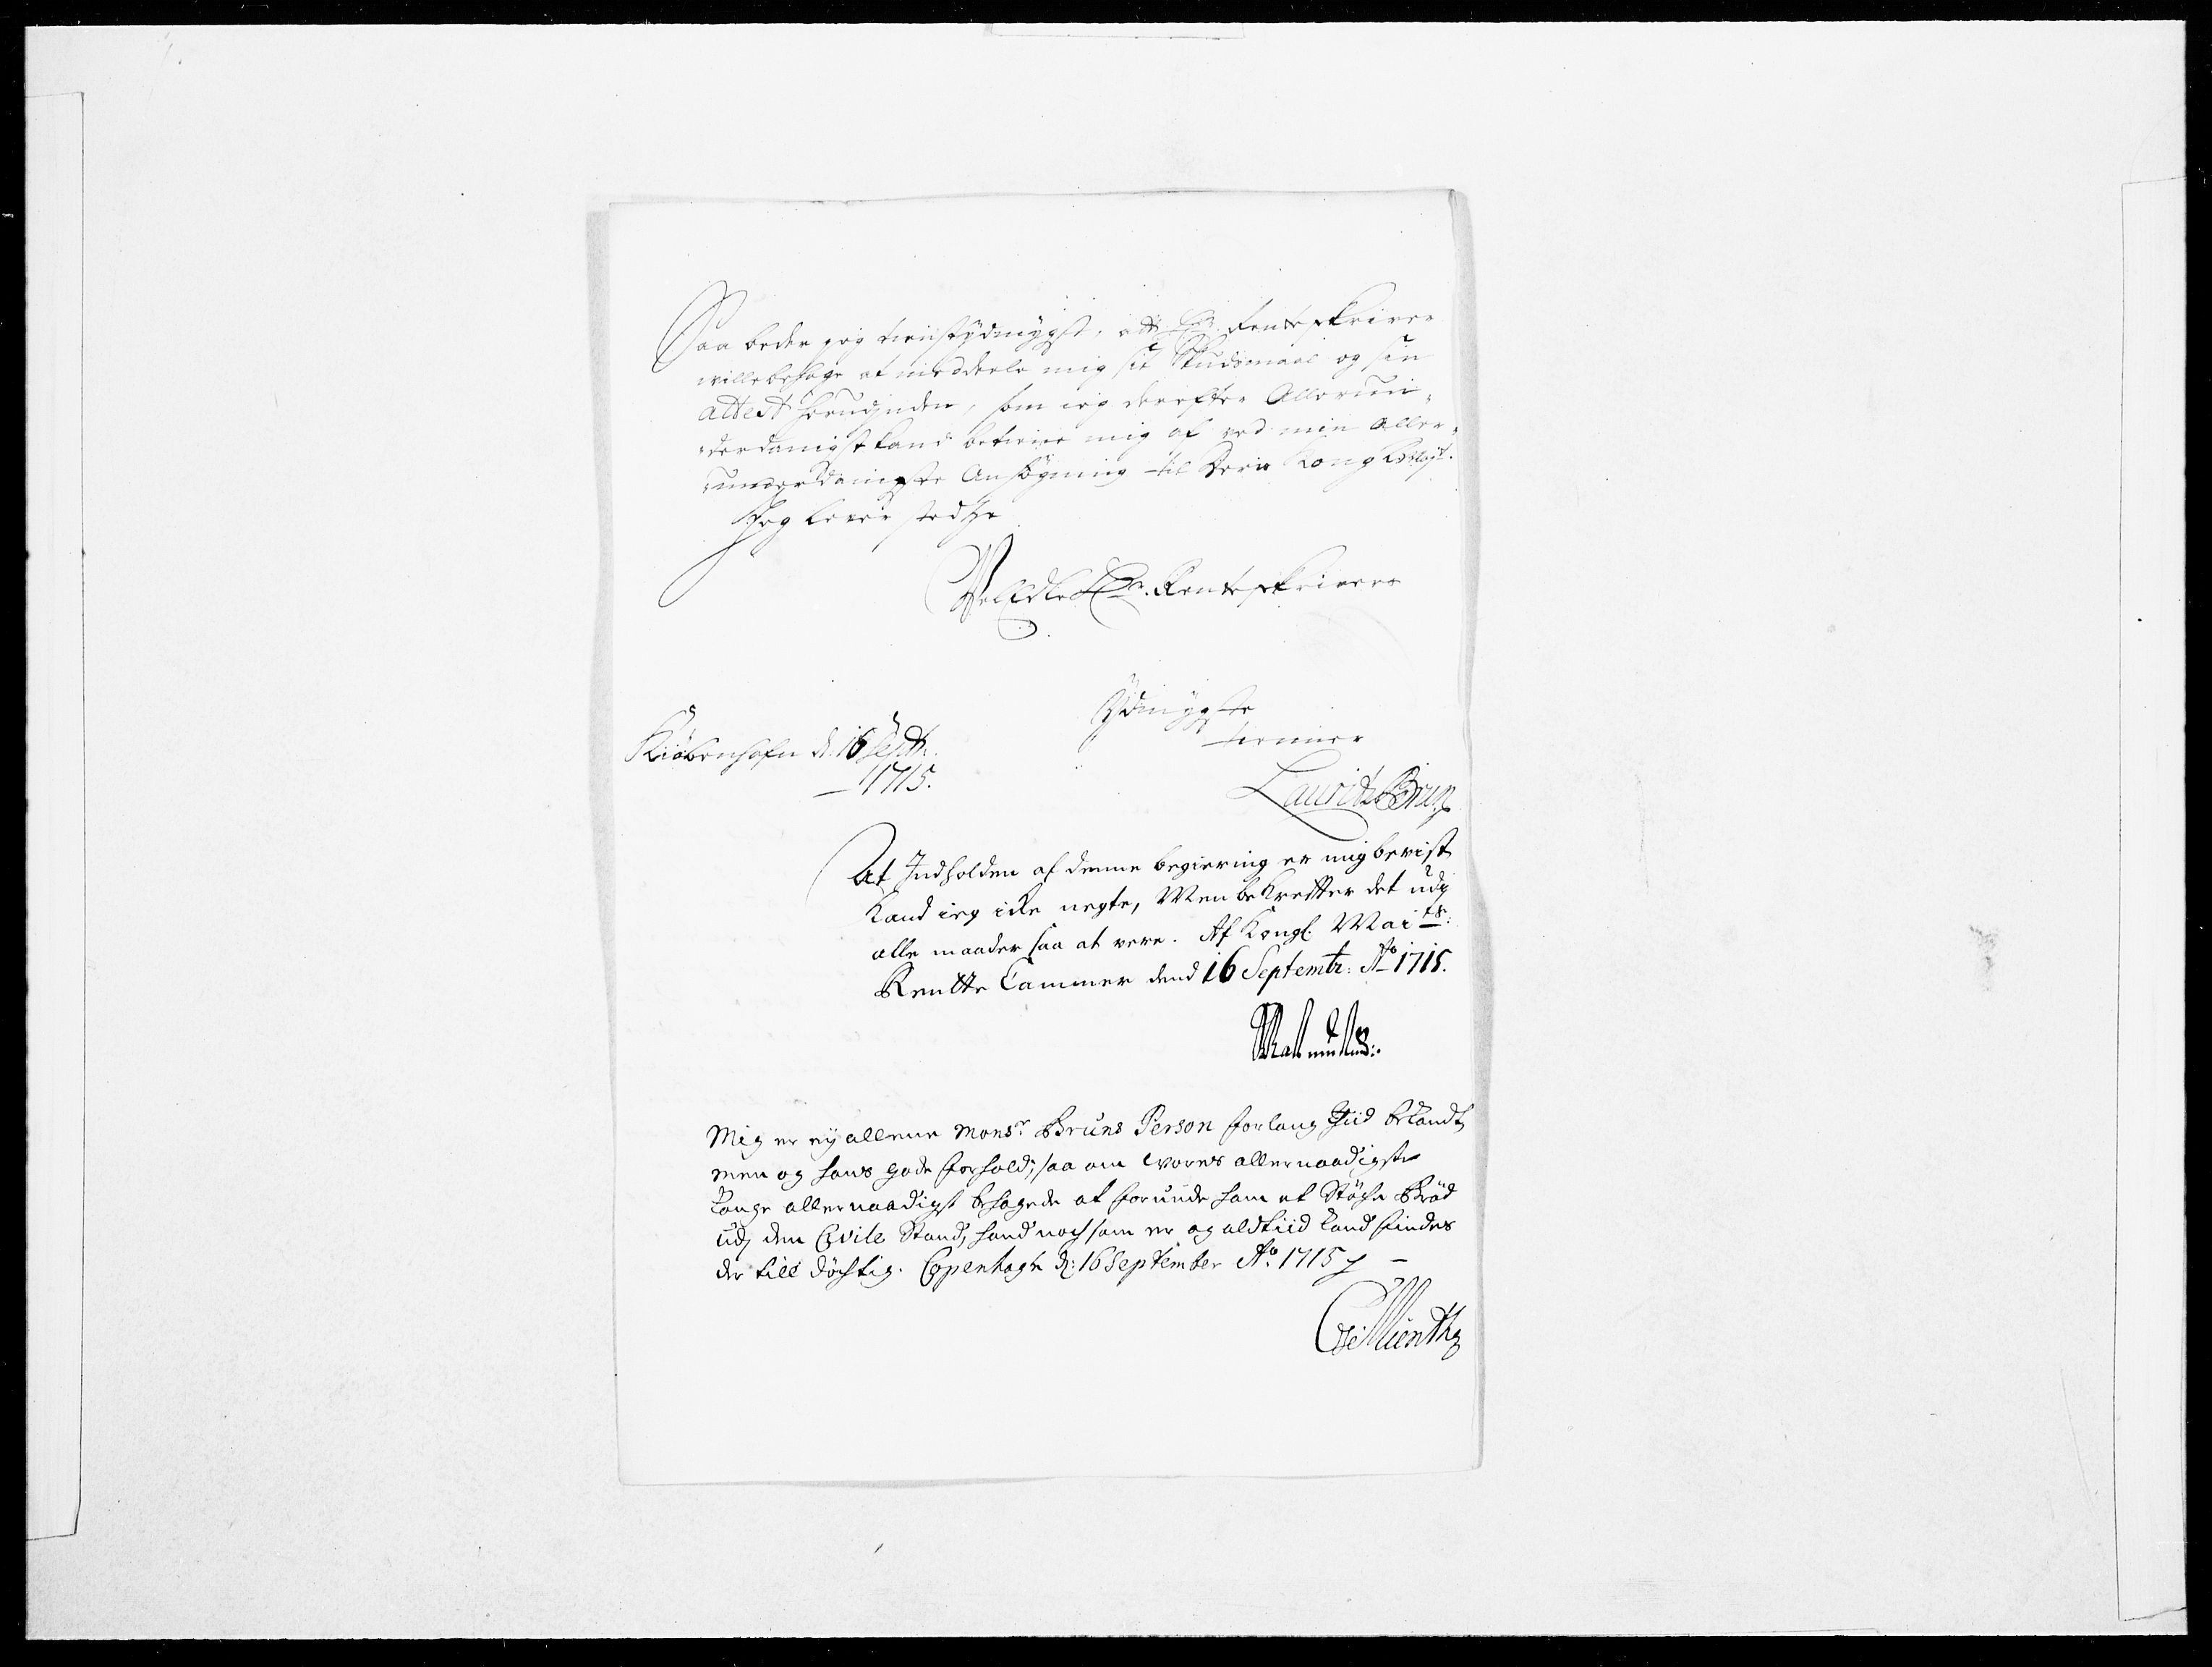 Saa beder jeg tienistydmygst, att Hr. Renteskriver
wille behage at meddeele mig sit Skudsmaal og sin
attest herunden, som ieg derefter Allerun-
-derdanigst kand betiene mig af ved min aller-
-underdanigste Ansøgning til Deris Kongl. Mayt.
Jeg lever stedtze
Veledle Hr. Renteskrivers
Ydmygste
tienner
Kiøbenhafn d: 16 Septr.
1715.
Lauritz Brun
At Indholden af denne begiering er mig bevist
kand ieg icke negte, Men bekreffter det udj
alle maader saa at vere. Af Kongl. Maits:
Rentte Cammer dend 16 Septembr: Ao 1715.
Mig er ey allene Monsr. Bruns Person for lang Tiid bekandt,
men og hans gode forhold; saa om vores allernaadigste
Konge allernaadigst behagede at forunde ham et Støche Brød
udj den Civile Stand, hand noch som er og altiid kand findes
der till døchtig. Copenhagen d: 16 September Ao. 1715
Münthe